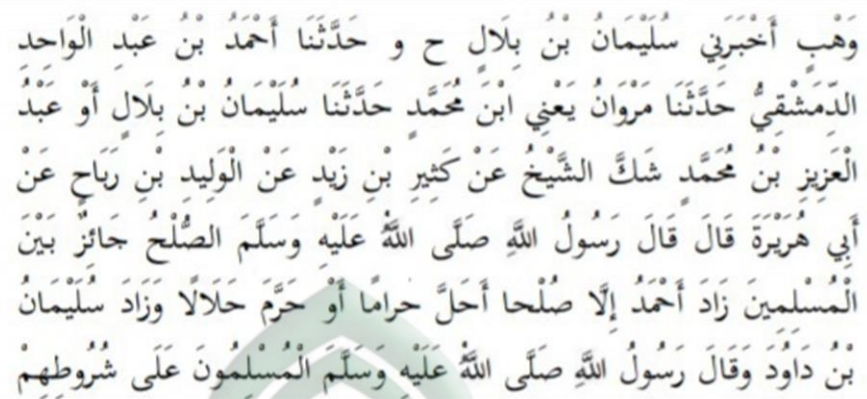 وَهْبٍ أَخْبَرَنِي سُلَيْمَانُ بْنُ بِلَالٍ ح و حَدَّثَنَا أَحْمَدُ بْنُ عَبْدِ الْوَاحِدِ
الدِّمَشْقِيُّ حَدَّثَنَا مَرْوَانُ يَعْنِي ابْنَ مُحَمَّدٍ حَدَّثَنَا سُلَيْمَانُ بْنُ بِلَالٍ أَوْ عَبْدُ
الْعَزِيزِ بْنُ مُحَمَّدٍ شَكَّ الشَّيْخُ عَنْ كَثِيرِ بْنِ زَيْدٍ عَنْ الْوَلِيدِ بْنِ رَبَاحٍ عَنْ
أَبِي هُرَيْرَةَ قَالَ قَالَ رَسُولُ اللَّهِ صَلَّى اللَّهُ عَلَيْهِ وَسَلَّمَ الصُّلْحُ جَائِزٌ بَيْنَ
الْمُسْلِمِينَ زَادَ أَحْمَدُ إِلَّا صُلْحا أَحَلَّ حَرامًا أَوْ حَرَّمَ حَلَالًا وَزَادَ سُلَيْمَانُ
بْنُ دَاوُدَ وَقَالَ رَسُولُ اللَّهِ صَلَّى اللَّهُ عَلَيْهِ وَسَلَّمَ الْمُسْلِمُونَ عَلَى شُرُوطِهِمْ